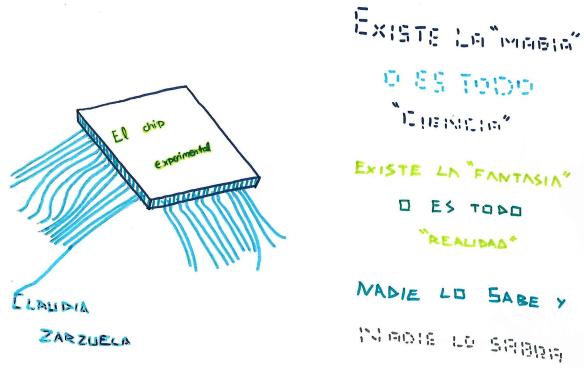 El chip
Experimental
CLAUDIA
ZARZUELA
EXISTE LA "MAGIA"
O ES TODO
"CIENCIA"
EXISTE LA "FANTASIA"
O ES TODO
"REALIDAD"
NADIE LO SABE Y
NADIE LO SABRA